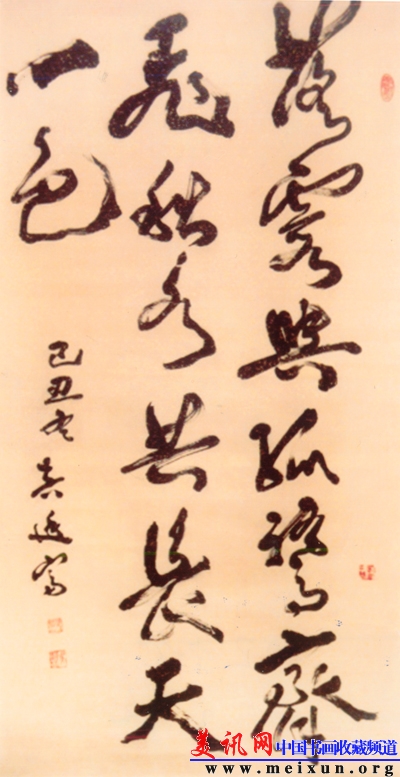 落霞與孤鶩齊
飛秋水共長天
一色
己丑冬
美讯网 中国书画收藏频道
www.meixun.org